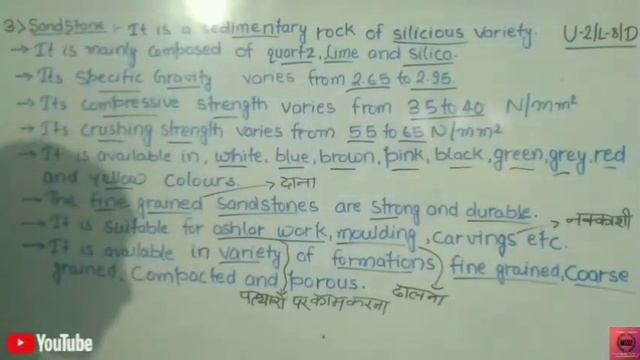 3⟩ Sandstone :- It is a sedimentary rock of silicious variety. U-2/L-8/D
→ It is mainly composed of quartz, Lime and silica.
→ Its Specific Gravity varies from 2.65 to 2.95
→ Its compressive strength varies from 35 to 40 N/mm²
→ Its crushing strength varies from 55 to 65 N/mm²
→ It is available in, white, blue, brown, pink, black, green, grey, red
and yellow colours. → दाना
→ The fine grained sandstones are strong and durable.
→ It is suitable for ashlar work, moulding, carvings etc. → नक्काशी
→ It is available in variety of formations fine grained, coarse
grained, Compacted and porous.
पत्थारों पर काम करना ढालना
YouTube